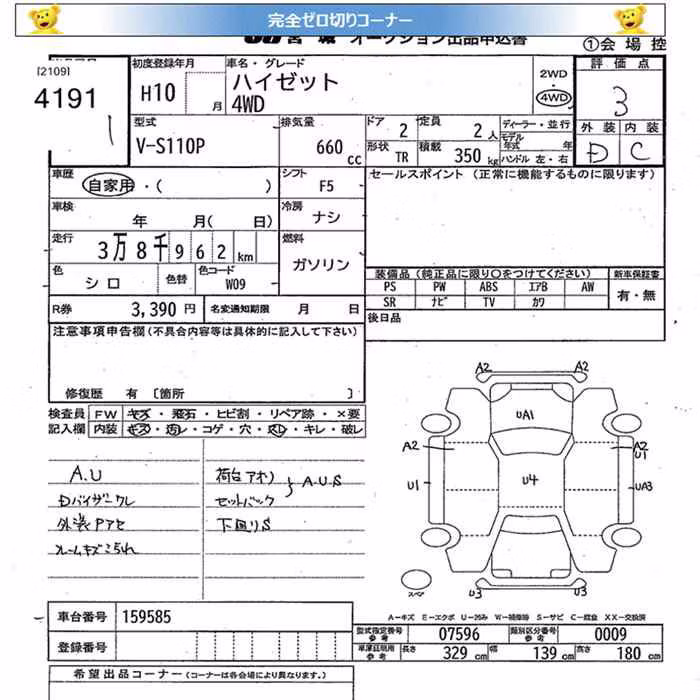 完全ゼロ切りコーナー
オークション出品申込書
①会場控
[2109]
4191
初度登録年月
H10
月
車名・グレード
ハイゼット
4WD
2WD
4WD
評価点
3
外装 内装
D C
型式
V-S110P
排気量
660 cc
ドア 2
定員 2人
形状 TR
積載 350 kg
ディーラー・並行
モデル年式 年
ハンドル 左・右
車歴
自家用・( )
シフト
F5
セールスポイント (正常に機能するものに限ります)
車検
年 月( 日)
冷房
ナシ
走行
3万8千962km
燃料
ガソリン
色
シロ
色替
色コード
W09
装備品 (純正品に限り○をつけてください)
新車保証書
PS PW ABS エアB AW
有・無
SR ナビ TV カワ
R券 3,390円
名変通知期限 月 日
後日品
注意事項申告欄 (不具合内容等は具体的に記入して下さい)
修復歴 有 〔箇所 〕
検査員 FW キズ・飛石・ヒビ割・リペア跡・×要
記入欄 内装 キズ・汚レ・コゲ・穴・スレ・キレ・破レ
A.U
Dバイザークレ
外装Pアセ
フレームキズこられ
荷台アオリ
セットバック
A.U.S
下回りS
A2 A2
UA1
A2
A2
U1
U1
U4
UA3
スペア
U3 U3
A-キズ E-エクボ U-凹み W-補修跡 S-サビ C-腐食 XX-交換済
車台番号 159585
登録番号
型式指定番号 参考 07596
類別区分番号 参考 0009
車庫証明用 参考 長さ 329 cm 幅 139 cm 高さ 180 cm
希望出品コーナー (コーナーは各会場により異なります。)